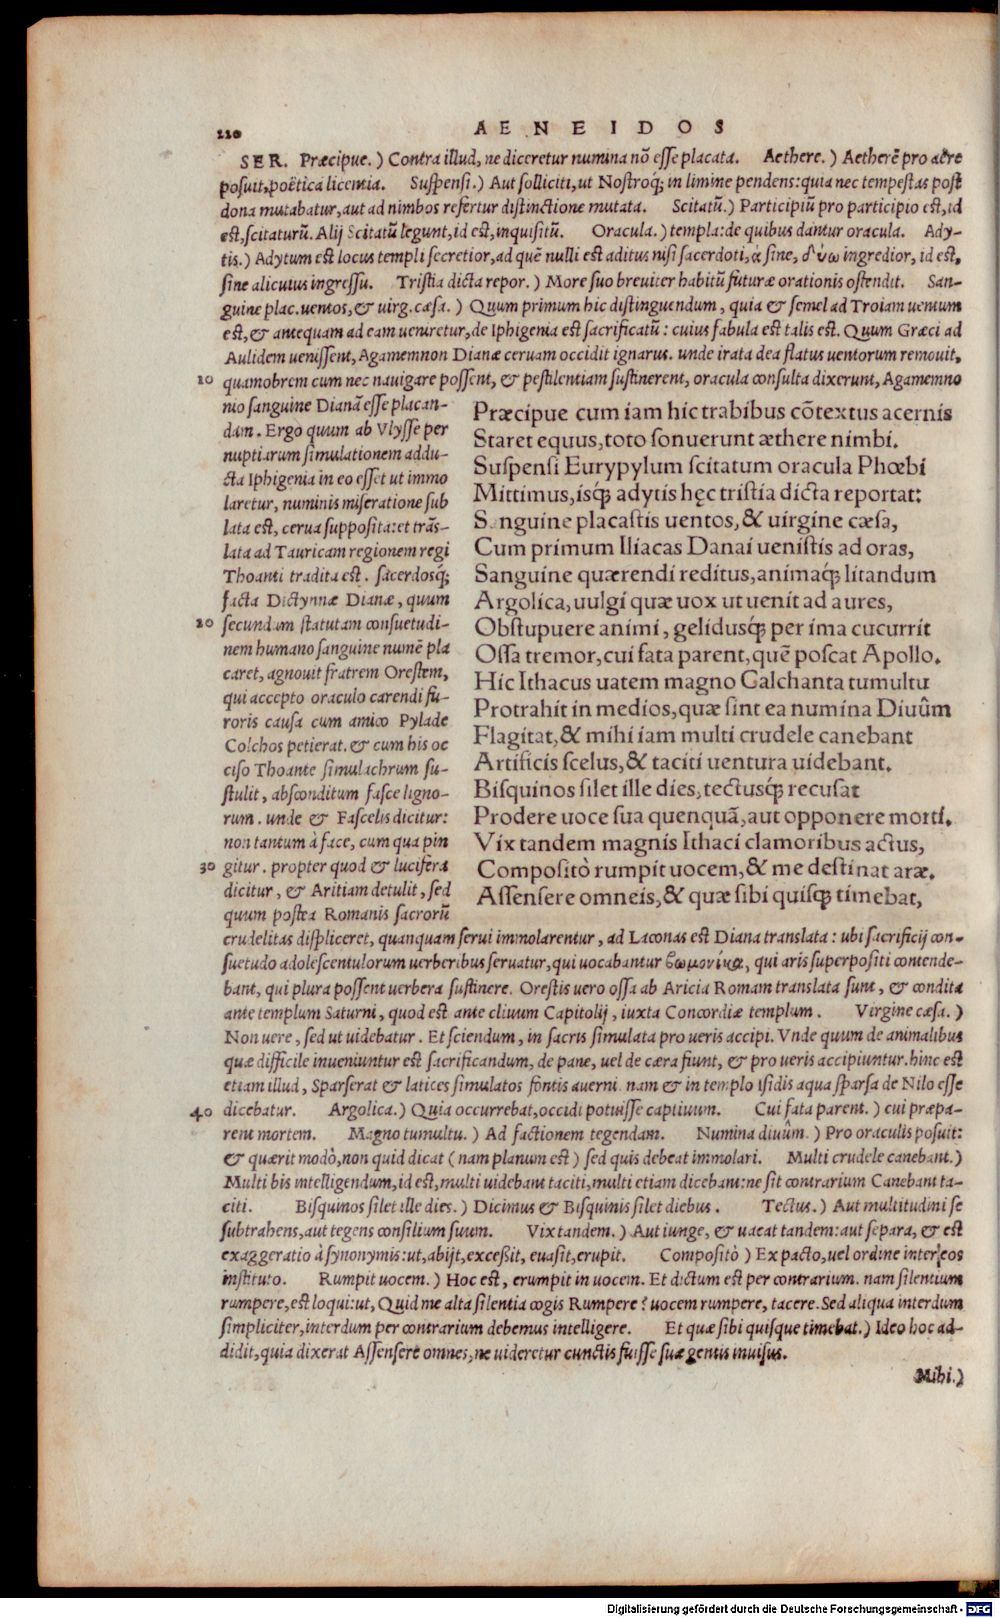 220
AENEIDOS
SER. Præcipue.) Contra illud, ne diceretur numina nõ esse placata. Aethere.) Aetherẽ pro aëre
posuit, poëtica licentia. Suspensi.) Aut solliciti, ut Nostroq́; in limine pendens: quia nec tempestas post
dona mutabatur, aut ad nimbos refertur distinctione mutata. Scitatũ.) Participiũ pro participio est, id
est, scitaturũ. Alij Scitatũ legunt, id est, inquisitũ. Oracula.) templa: de quibus dantur oracula. Ady-
tis.) Adytum est locus templi secretior, ad quẽ nulli est aditus nisi sacerdoti, ἀ sine, δύω ingredior, id est,
sine alicuius ingressu. Tristia dicta repor.) More suo breuiter habitũ futuræ orationis ostendit. San-
guine plac. uentos, & uirg. cæsa.) Quum primum hic distinguendum, quia & semel ad Troiam uentum
est, & antequam ad eam ueniretur, de Iphigenia est sacrificatũ: cuius fabula est talis est. Quum Græci ad
Aulidem uenissent, Agamemnon Dianæ ceruam occidit ignarus. unde irata dea flatus uentorum remouit,
10 quamobrem cum nec nauigare possent, & pestilentiam sustinerent, oracula consulta dixerunt, Agamemno
nio sanguine Dianã esse placan-
dam. Ergo quum ab Vlysse per
nuptiarum simulationem addu-
cta Iphigenia in eo esset ut immo
laretur, numinis miseratione sub
lata est, cerua supposita: et trãs-
lata ad Tauricam regionem regi
Thoanti tradita est. sacerdosq́;
facta Dictynnæ Dianæ, quum
20 secundum statutam consuetudi-
nem humano sanguine numẽ pla
caret, agnouit fratrem Orestem,
qui accepto oraculo carendi fu-
roris causa cum amico Pylade
Colchos petierat. & cum his oc
ciso Thoante simulachrum su-
stulit, absconditum fasce ligno-
rum. unde & Fascelis dicitur:
non tantum à face, cum qua pin
30 gitur. propter quod & lucifera
dicitur, & Aritiam detulit, sed
quum postea Romanis sacrorũ
Præcipue cum iam hic trabibus cõtextus acernis
Staret equus, toto sonuerunt æthere nimbi.
Suspensi Eurypylum scitatum oracula Phœbi
Mittimus, isq́; adytis hęc tristia dicta reportat:
Sanguine placastis uentos, & uirgine cæsa,
Cum primum Iliacas Danai uenistis ad oras,
Sanguine quærendi reditus, animaq́; litandum
Argolica, uulgi quæ uox ut uenit ad aures,
Obstupuere animi, gelidusq́; per ima cucurrit
Ossa tremor, cui fata parent, quẽ poscat Apollo.
Hic Ithacus uatem magno Calchanta tumultu
Protrahit in medios, quæ sint ea numina Diuûm
Flagitat, & mihi iam multi crudele canebant
Artificis scelus, & taciti uentura uidebant.
Bisquinos silet ille dies, tectusq́; recusat
Prodere uoce sua quenquã, aut opponere morti.
Vix tandem magnis Ithaci clamoribus actus,
Compositò rumpit uocem, & me destinat aræ.
Assensere omneis, & quæ sibi quisq́; timebat,
crudelitas displiceret, quanquam serui immolarentur, ad Laconas est Diana translata: ubi sacrificij con-
suetudo adolescentulorum uerberibus seruatur, qui uocabantur βωμονίκαι, qui aris superpositi contende-
bant, qui plura possent uerbera sustinere. Orestis uero ossa ab Aricia Romam translata sunt, & condita
ante templum Saturni, quod est ante cliuum Capitolij, iuxta Concordiæ templum. Virgine cæsa.)
Non uere, sed ut uidebatur. Et sciendum, in sacris simulata pro ueris accipi. Vnde quum de animalibus
quæ difficile inueniuntur est sacrificandum, de pane, uel de cæra fiunt, & pro ueris accipiuntur. hinc est
etiam illud, Sparserat & latices simulatos fontis auerni. nam & in templo Isidis aqua sparsa de Nilo esse
40 dicebatur. Argolica.) Quia occurrebat, occidi potuisse captiuum. Cui fata parent.) cui præpa-
rent mortem. Magno tumultu.) Ad factionem tegendam. Numina diuûm.) Pro oraculis posuit:
& quærit modò, non quid dicat (nam planum est) sed quis debeat immolari. Multi crudele canebant.)
Multi bis intelligendum, id est, multi uidebant taciti, multi etiam dicebant: ne sit contrarium Canebant ta-
citi. Bisquinos silet ille dies.) Dicimus & Bisquinis silet diebus. Tectus.) Aut multitudini se
subtrahens, aut tegens consilium suum. Vix tandem.) Aut iunge, & uacat tandem: aut separa, & est
exaggeratio à synonymis: ut, abijt, exceßit, euasit, erupit. Compositò) Ex pacto, uel ordine inter eos
instituto. Rumpit uocem.) Hoc est, erumpit in uocem. Et dictum est per contrarium. nam silentium
rumpere, est loqui: ut, Quid me alta silentia cogis Rumpere? uocem rumpere, tacere. Sed aliqua interdum
simpliciter, interdum per contrarium debemus intelligere. Et quæ sibi quisque timebat.) Ideo hoc ad-
didit, quia dixerat Assensere omnes, ne uideretur cunctis fuisse suæ gentis inuisus.
Mihi.)
Digitalisierung gefördert durch die Deutsche Forschungsgemeinschaft - DFG